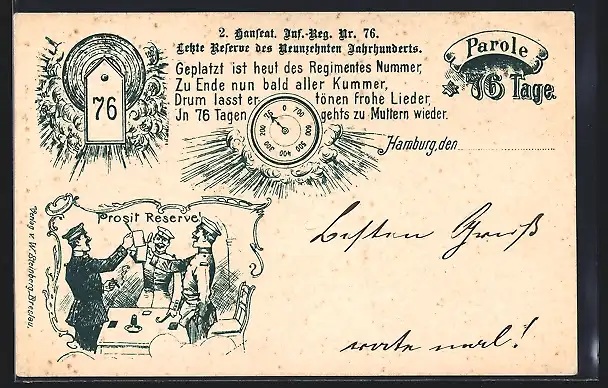 2. Hanseat. Inf.-Reg. Nr. 76.
Letzte Reserve des Neunzehnten Jahrhunderts.
Geplatzt ist heut des Regimentes Nummer,
Zu Ende nun bald aller Kummer,
Drum lasst er tönen frohe Lieder,
Jn 76 Tagen gehts zu Muttern wieder.
Parole
76 Tage.
76
0 700
Hamburg, den
Prosit Reserve!
Verlag v. W. Steinberg, Breslau.
Besten Gruß
warte mal!